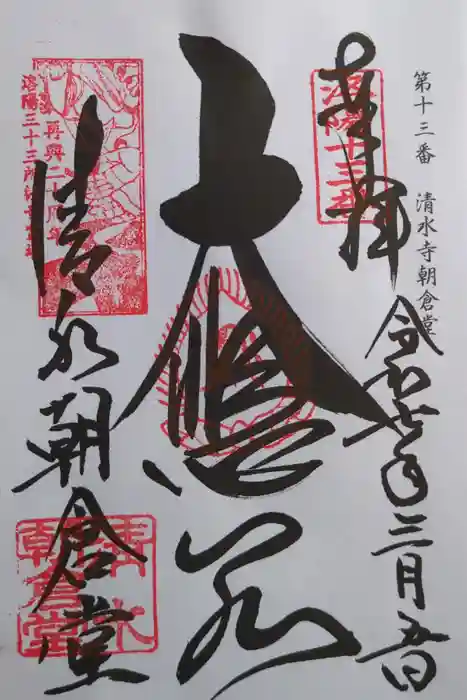 第十三番 清水寺朝倉堂
奉拝
洛陽十三番
令和七年三月五日
大悲閣
清水朝倉堂
再興二十周年
洛陽三十三所観音霊場
清水
朝倉堂